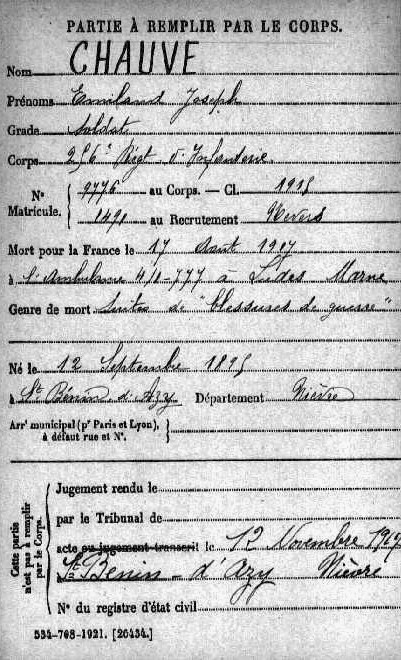 PARTIE À REMPLIR PAR LE CORPS.
Nom CHAUVE
Prénoms Emiland Joseph
Grade Soldat
Corps 256e Régt d'Infanterie
N° Matricule. 9776 au Corps. — Cl. 1915
1491 au Recrutement Nevers
Mort pour la France le 17 Août 1917
à l'Ambulance à Marne
Genre de mort Suites de "blessures de guerre"
Né le 12 Septembre 1895
à St Bénin d'Azy Département Nièvre
Arrt municipal (pr Paris et Lyon), à défaut rue et N°.
Cette partie n'est pas à remplir par le Corps.
Jugement rendu le
par le Tribunal de
acte ou jugement transcrit le 12 Novembre 1917
St Benin-d'Azy Nièvre
N° du registre d'état civil
534-708-1921. [26434.]